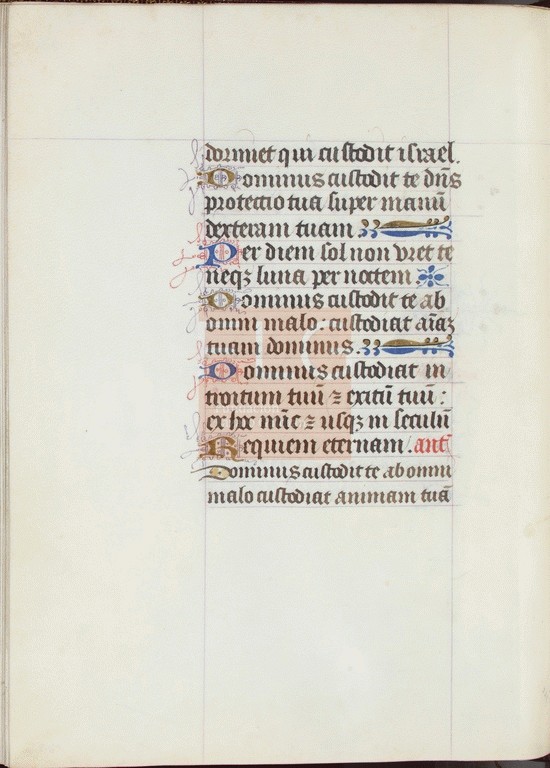 dormiet qui custodit israel.
Dominus custodit te dn̄s
protectio tua super manū
dexteram tuam
Per diem sol non vret te
neqȝ luna per noctem
Dominus custodit te ab
omni malo: custodiat aīaȝ
tuam dominus.
Dominus custodiat in
troitum tuū ⁊ exitū tuū:
ex hoc nūc ⁊ usqȝ in seculū
Requiem eternam. ant̄
Dominus custodit te ab omni
malo custodiat animam tuā